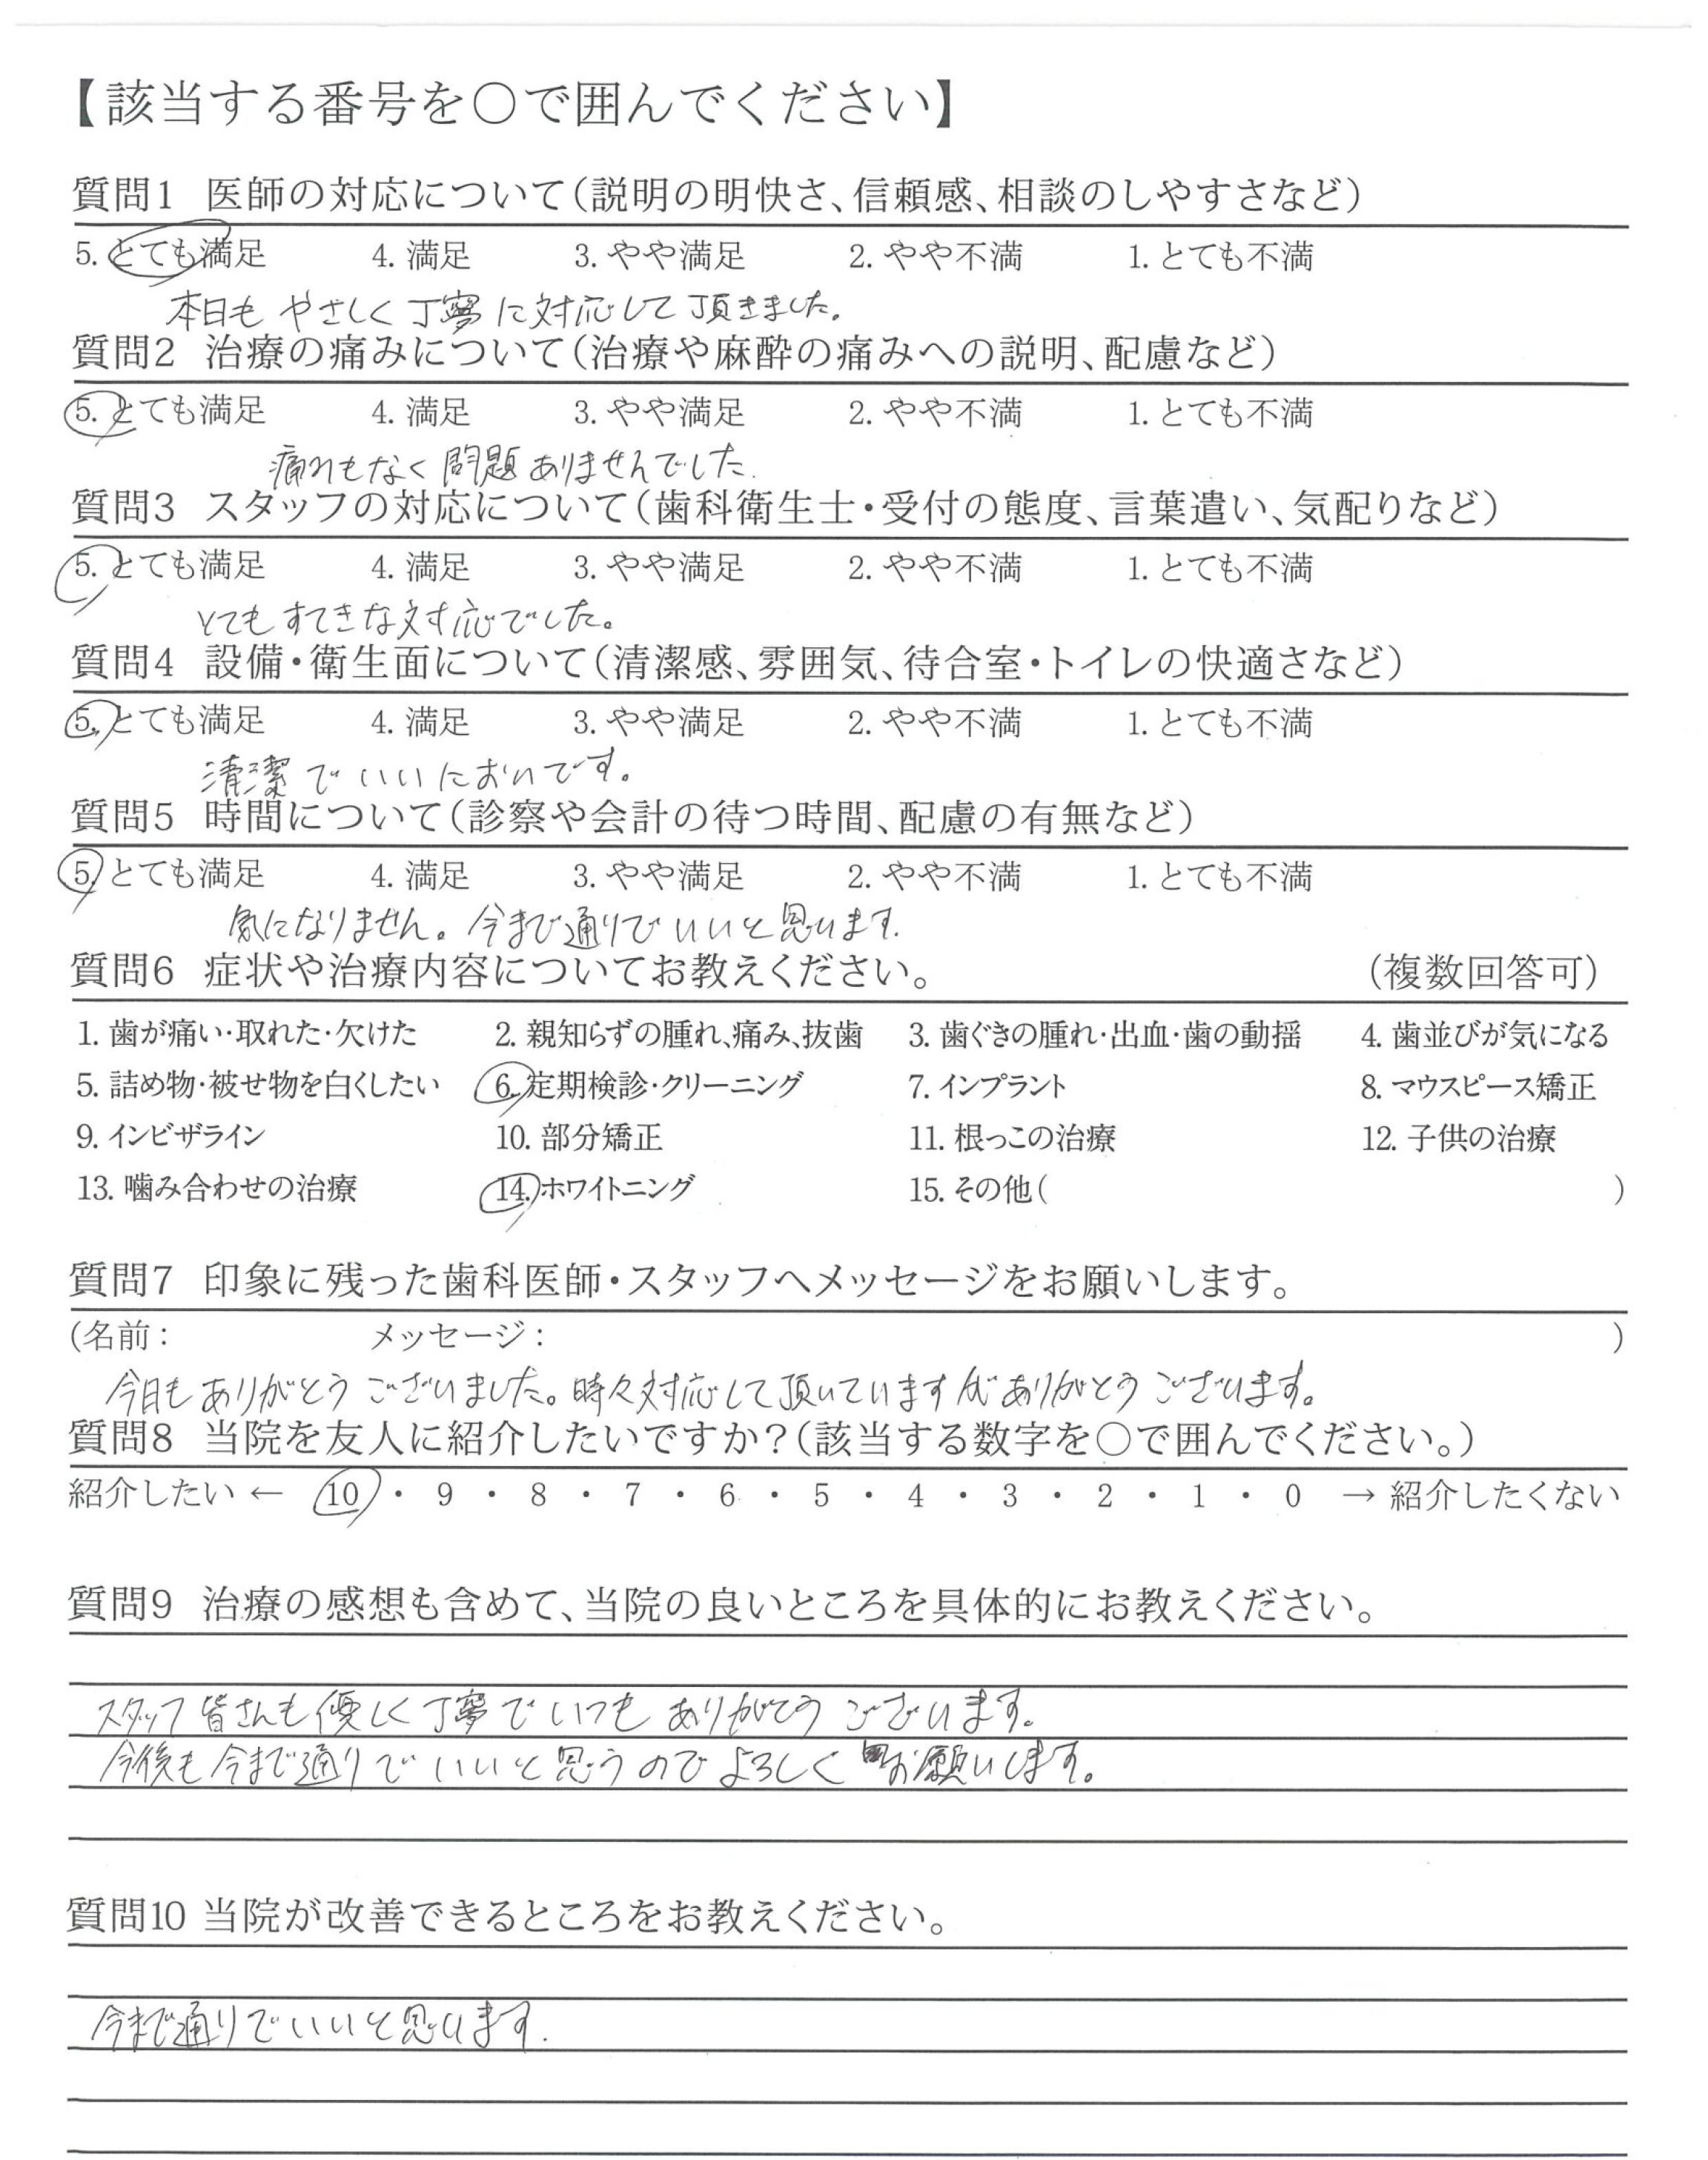 【該当する番号を〇で囲んでください】
質問1 医師の対応について(説明の明快さ、信頼感、相談のしやすさなど)
5. とても満足 4. 満足 3. やや満足 2. やや不満 1. とても不満
本日も やさしく 丁寧 に対応して 頂きました。
質問2 治療の痛みについて(治療や麻酔の痛みへの説明、配慮など)
5. とても満足 4. 満足 3. やや満足 2. やや不満 1. とても不満
痛れもなく 問題 ありませんでした.
質問3 スタッフの対応について(歯科衛生士・受付の態度、言葉遣い、気配りなど)
5. とても満足 4. 満足 3. やや満足 2. やや不満 1. とても不満
とても すてきな対応でした。
質問4 設備・衛生面について(清潔感、雰囲気、待合室・トイレの快適さなど)
5. とても満足 4. 満足 3. やや満足 2. やや不満 1. とても不満
清潔で いいにおいです。
質問5 時間について(診察や会計の待つ時間、配慮の有無など)
5. とても満足 4. 満足 3. やや満足 2. やや不満 1. とても不満
気になりません。今まで通りで いいと思います.
質問6 症状や治療内容についてお教えください。 (複数回答可)
1. 歯が痛い・取れた・欠けた 2. 親知らずの腫れ、痛み、抜歯 3. 歯ぐきの腫れ・出血・歯の動揺 4. 歯並びが気になる
5. 詰め物・被せ物を白くしたい 6. 定期検診・クリーニング 7. インプラント 8. マウスピース矯正
9. インビザライン 10. 部分矯正 11. 根っこの治療 12. 子供の治療
13. 噛み合わせの治療 14. ホワイトニング 15. その他( )
質問7 印象に残った歯科医師・スタッフへメッセージをお願いします。
(名前: メッセージ: )
今日も ありがとう ございました。時々対応して頂いていますが ありがとう ございます。
質問8 当院を友人に紹介したいですか?(該当する数字を〇で囲んでください。)
紹介したい ← 10 ・ 9 ・ 8 ・ 7 ・ 6 ・ 5 ・ 4 ・ 3 ・ 2 ・ 1 ・ 0 → 紹介したくない
質問9 治療の感想も含めて、当院の良いところを具体的にお教えください。
スタッフ 皆さんも 優しく 丁寧で いつも ありがとう ございます。
今後も 今まで通りで いいと 思うので よろしく お願いします。
質問10 当院が改善できるところをお教えください。
今まで通りで いいと思います.